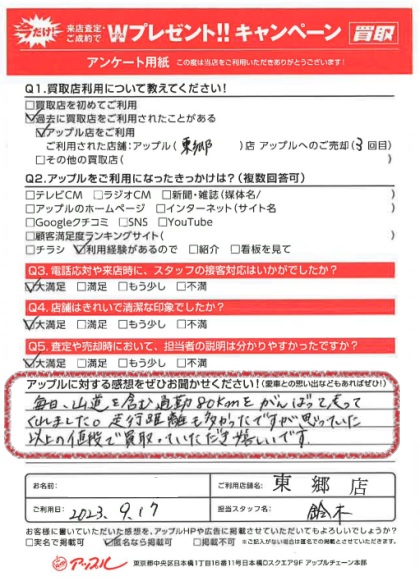 今だけ! 来店査定・ご成約で Wプレゼント!! キャンペーン 買取
アンケート用紙 この度は当店をご利用いただきありがとうございます!
Q1.買取店利用について教えてください!
□買取店を初めてご利用
☑過去に買取店をご利用されたことがある
☑アップル店をご利用
ご利用された店舗:アップル( 東郷 )店 アップルへのご売却(3回目)
□その他の買取店( )
Q2.アップルをご利用になったきっかけは?(複数回答可)
□テレビCM □ラジオCM □新聞・雑誌(媒体名/ )
□アップルのホームページ □インターネット(サイト名 )
□Googleクチコミ □SNS □YouTube
□顧客満足度ランキングサイト( )
□チラシ ☑利用経験があるので □紹介 □看板を見て
Q3.電話応対や来店時に、スタッフの接客対応はいかがでしたか?
☑大満足 □満足 □もう少し □不満
Q4.店舗はきれいで清潔な印象でしたか?
☑大満足 □満足 □もう少し □不満
Q5.査定や売却時において、担当者の説明は分かりやすかったですか?
☑大満足 □満足 □もう少し □不満
アップルに対する感想をぜひお聞かせください!(愛車との思い出などもあればぜひ!)
毎日、山道を含む通勤80kmをがんばって走って
くれました。走行距離も多かったですが思っていた
以上の値段で買取っていただき嬉しいです。
お名前: ご利用店舗名: 東郷店
ご利用日: 2023.9.17 担当スタッフ名: 鈴木
お客様に書いていただいた感想を、アップルHPや広告に掲載させていただいてもよろしいでしょうか?
□実名で掲載可 ☑匿名なら掲載可 □掲載不可 ※ご記入がない場合は匿名での掲載とさせていただきます。
アップル 東京都中央区日本橋1丁目16番11号日本橋Dスクエア9F アップルチェーン本部